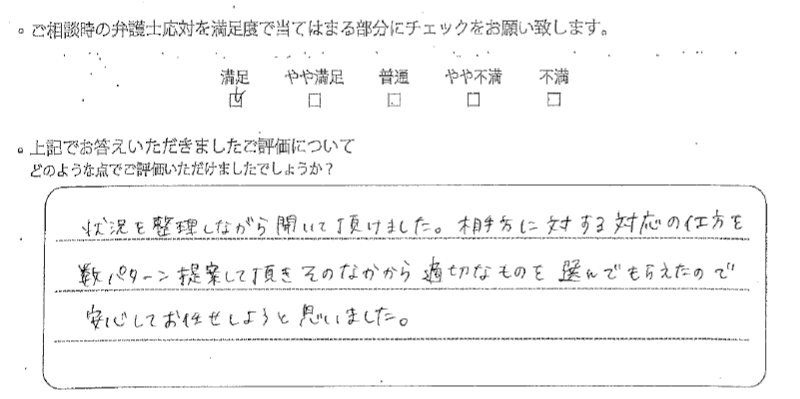 。ご相談時の弁護士応対を満足度で当てはまる部分にチェックをお願い致します。
満足 やや満足 普通 やや不満 不満
☑ □ □ □ □
。上記でお答えいただきましたご評価について
どのような点でご評価いただけましたでしょうか？
状況を整理しながら聞いて頂けました。相手方に対する対応の仕方を
数パターン提案して頂きそのなかから適切なものを選んでもらえたので
安心してお任せしようと思いました。